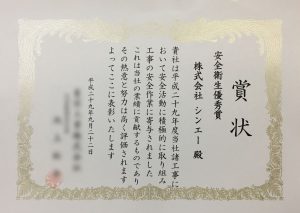 賞状
安全衛生優秀賞
株式会社 シンエー 殿
貴社は平成二十九年度当社諸工事に
おいて安全活動に積極的に取り組み
工事の安全作業に寄与されました
これは当社の業績に貢献するものであり
その熱意と努力は高く評価されます
よってここに表彰いたします
平成二十九年九月二十二日